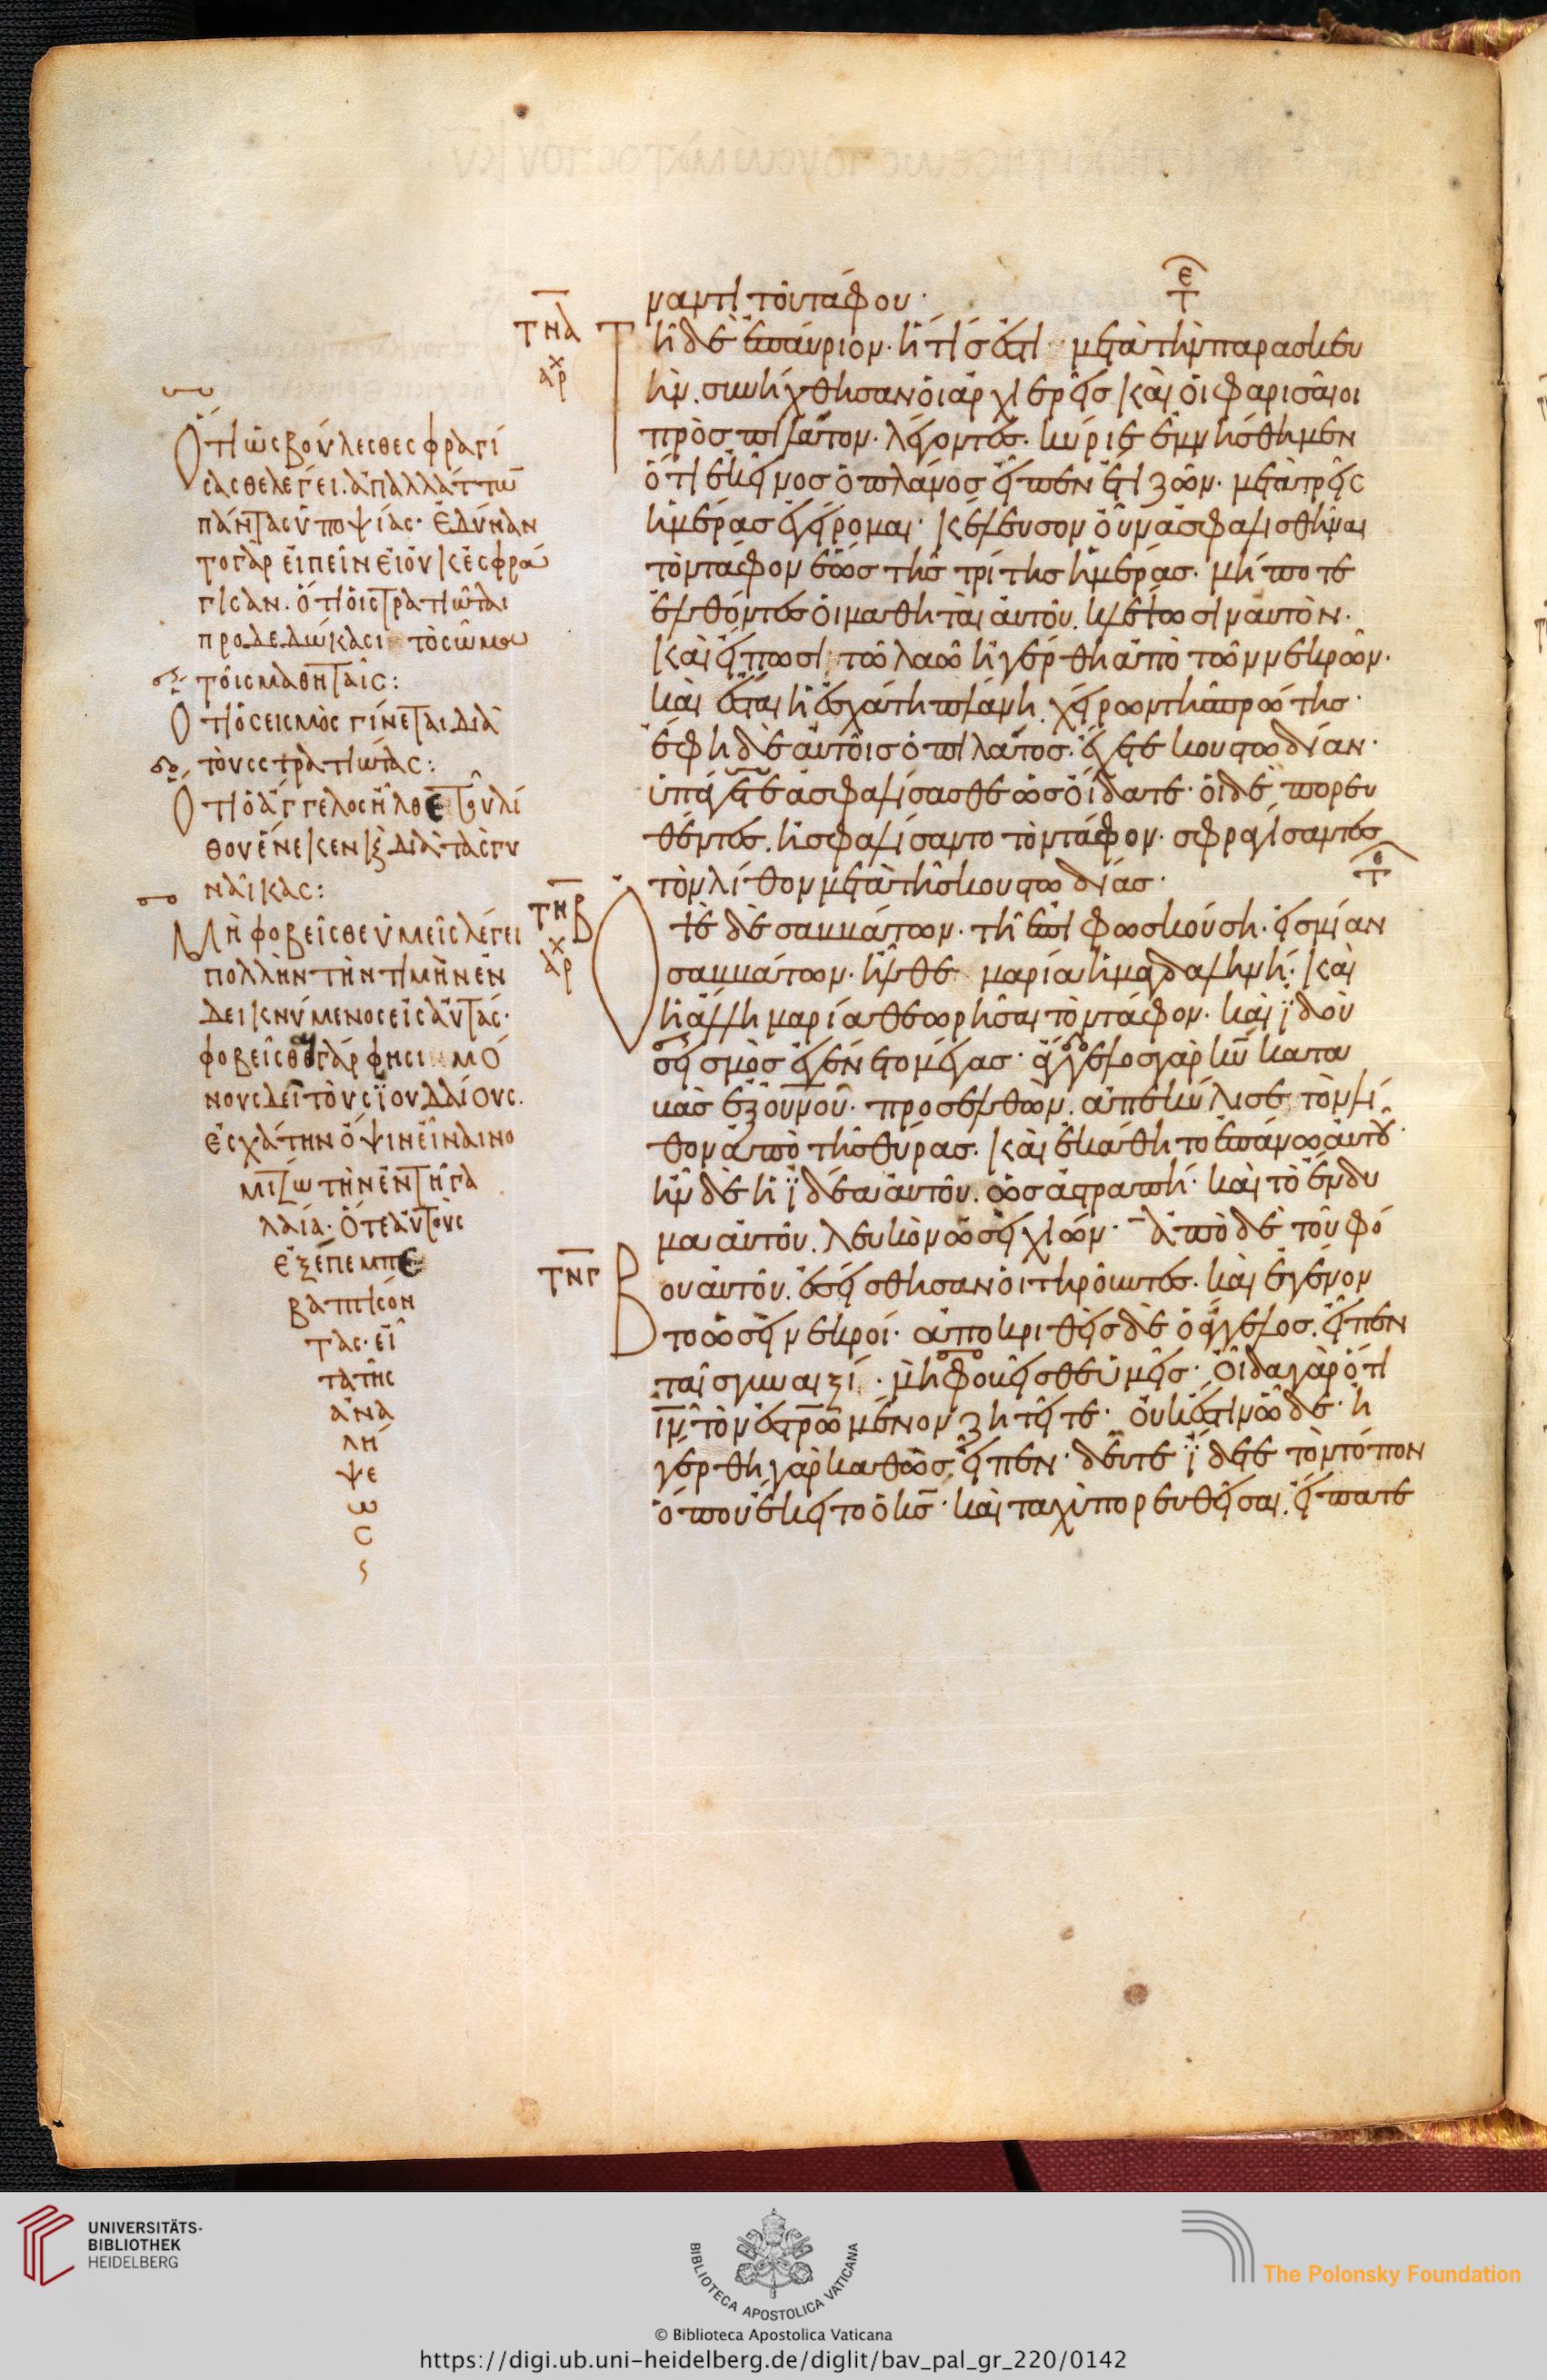 ναντι τοῦ τάφου·
ε
τ
τνα
Τῆ δὲ ἐπαύριον· ἥτις ἐστὶ μετὰ τὴν παρασκευ
χ
αρ
ὴν. συνήχθησαν οἱ ἀρχιερεῖς καὶ οἱ φαρισαῖοι
πρὸς πιλάτον· λέγοντες. κύριε ἐμνήσθημεν
ὅτι ἐκεῖνος ὁ πλάνος εἶπεν ἔτι ζῶν· μετὰ τρεῖς
ἡμέρας ἐγείρομαι· κέλευσον οὖν ἀσφαλισθῆναι
τὸν τάφον ἕως τῆς τρίτης ἡμέρας· μήποτε
ἐλθόντες οἱ μαθηταὶ αὐτοῦ. κλέψωσιν αὐτὸν·
καὶ εἴπωσι τῶ λαῶ ἠγέρθη ἀπὸ τῶν νεκρῶν·
καὶ ἔσται ἡ ἐσχάτη πλάνη χείρων τῆς πρώτης·
ἔφη δὲ αὐτοῖς ὁ πιλάτος. ἔχετε κουστωδίαν·
ὑπάγετε ἀσφαλίσασθε ὡς οἴδατε· οἱ δὲ πορευ
θέντες. ἠσφαλίσαντο τὸν τάφον· σφραγίσαντες
τὸν λίθον μετὰ τῆς κουστωδίας·
ε
τ
τνβ
Ὀτὲ δὲ σαββάτων· τῆ ἐπιφωσκούση· εἰς μίαν
χ
αρ
σαββάτων· ἦλθε μαρία ἡ μαγδαληνή· καὶ
ἡ ἄλλη μαρία θεωρῆσαι τὸν τάφον· καὶ ἰδοὺ
σεισμὸς ἐγένετο μέγας· ἄγγελος γὰρ κυ κατα
βὰς ἐξ οὐνοῦ· προσελθὼν. ἀπεκύλισε τὸν λί
θον ἀπὸ τῆς θύρας· καὶ ἐκάθητο ἐπάνω αὐτοῦ·
ἦν δὲ ἡ ἰδέα αὐτοῦ. ὡς ἀστραπή· καὶ τὸ ἔνδυ
μα αὐτοῦ. λευκὸν ὡσεὶ χιών· ἀπὸ δὲ τοῦ φό
τνγ
Βου αὐτοῦ. ἐσείσθησαν οἱ τηροῦντες· καὶ ἐγένον
το ὡσεὶ νεκροί· ἀποκριθεὶς δὲ ὁ ἄγγελος. εἶπεν
ταῖς γυναιξί· μὴ φοβεῖσθε ὑμεῖς· οἶδα γὰρ ὅτι
ιν τὸν ἐστρωμένον ζητεῖτε· οὐκ ἔστιν ὧδε· ἠ
γέρθη γὰρ καθὼς εἶπεν· δεῦτε ἴδετε τὸν τόπον
ὅπου ἔκειτο ὁ κς· καὶ ταχὺ πορευθεῖσαι. εἴπατε
Ὅτι ὡς βούλεσθε σφραγί
σασθε λέγει. ἀπαλλάττω
πάντας ὑποψίας· ἐδύναν
το γὰρ εἰπεῖν εἰ οὐκ ἐσφρά
γισαν. ὅτι οἱ στρατιῶται
προδεδώκασι τὸ σῶμα
τοῖς μαθηταῖς:
Ὅτι ὁ σεισμὸς γίνεται διὰ
τοὺς στρατιώτας:
Ὅτι ὁ ἄγγελος ἦλθε τοῦ λί
θου ἕνεκεν κ διὰ τὰς γυ
ναῖκας:
Μὴ φοβεῖσθε ὑμεῖς λέγει
πολλὴν τὴν τιμὴν ἐν
δεικνύμενος εἰς αὐτάς·
φοβεῖσθαι γάρ φησι μό
νους δεῖ τοὺς ἰουδαίους.
ἐσχάτην ὄψιν εἶναι νο
μίζω τὴν ἐν τῆ γα
λαία· ὅτε αὐτοὺς
ἐξέπεμπε
βαπτίσον
τας· εἶ
τα τῆς
ἀνα
λή
ψε
ω
ς
UNIVERSITÄTS-
BIBLIOTHEK
HEIDELBERG
BIBLIOTECA APOSTOLICA VATICANA
© Biblioteca Apostolica Vaticana
The Polonsky Foundation
https://digi.ub.uni-heidelberg.de/diglit/bav_pal_gr_220/0142